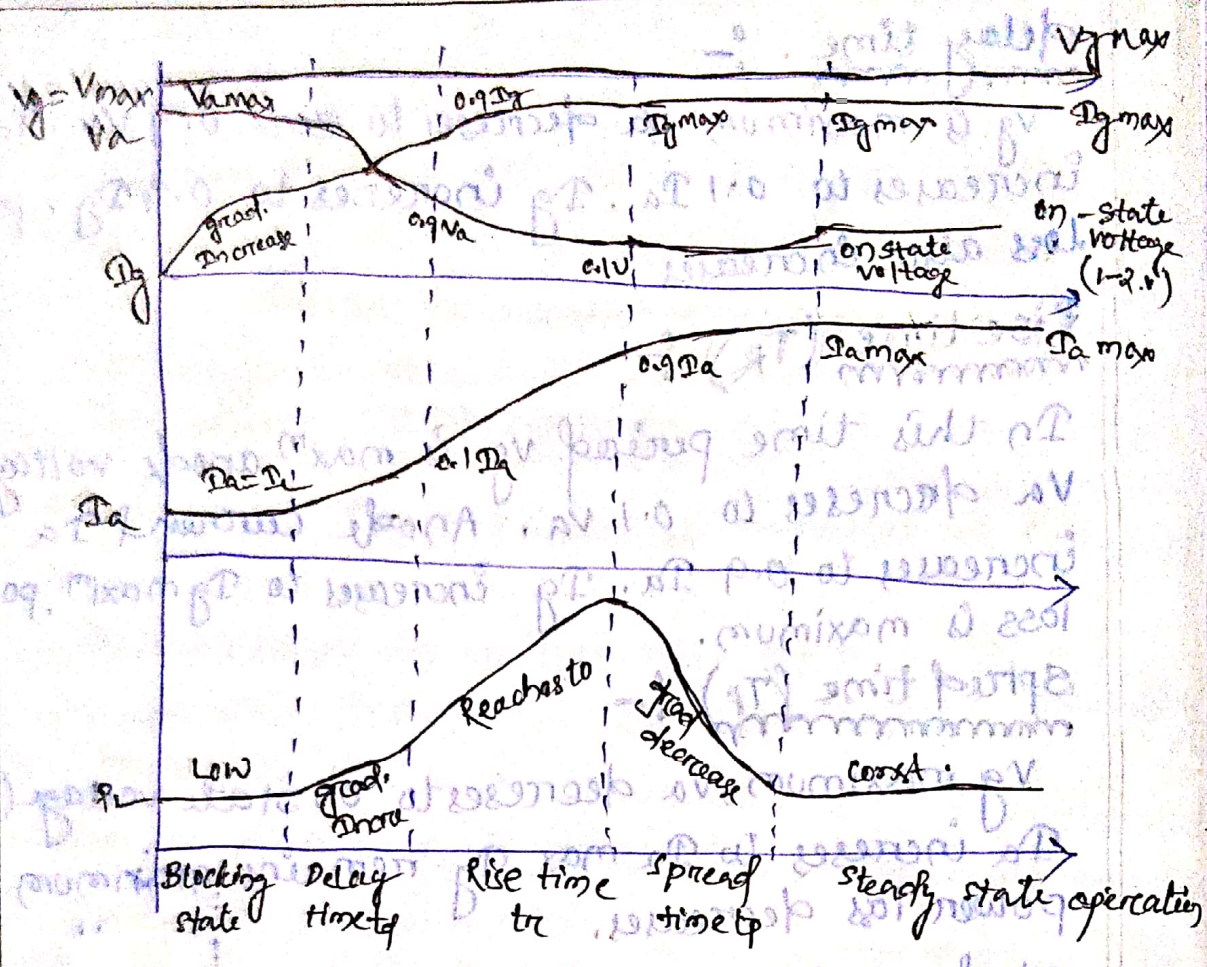 Vg max
Vg = Vmax
Va
Vamax
0.9Ig
Igmax
Igmax
Ig max
grad.
Increase
0.9Va
0.1V
on state
voltage
on-state
voltage
(1-2.V)
Ig
0.9Ia
Iamax
Ia max
0.1Ia
Ia=IL
Ia
Reaches to
grad
decrease
Low
grad.
Incre
const.
PL
Blocking
state
Delay
time td
Rise time
tr
Spread
time tp
Steady state operation